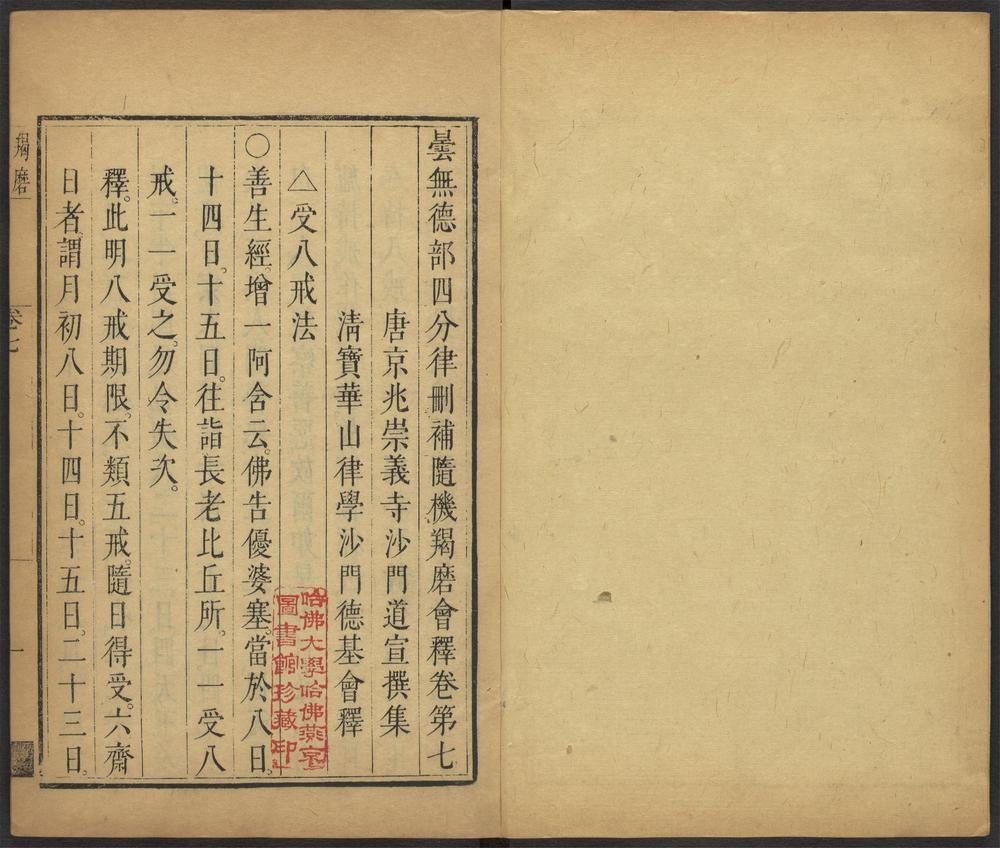 曇無德部四分律刪補隨機羯磨會釋卷第七
唐京兆崇義寺沙門道宣撰集
清寶華山律學沙門德基會釋
△受八戒法
○善生經。增一阿含云。佛告優婆塞。當於八日。
十四日。十五日。往詣長老比丘所。一一受八
戒。一一受之。勿令失次。
釋。此明八戒期限。不類五戒。隨日得受。六齋
日者。謂月初八日。十四日。十五日。二十三日。
羯磨
卷七
一
哈佛大學哈佛燕京
圖書館珍藏印